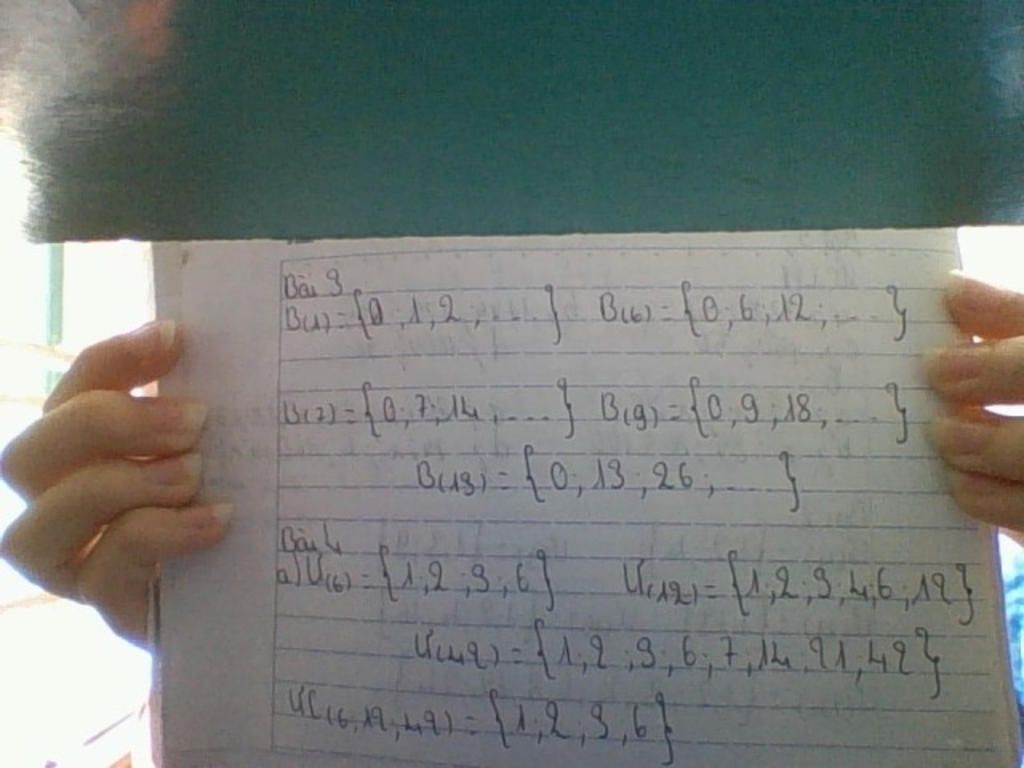 Bài 3
B(1) = {0; 1; 2; ....} B(6) = {0; 6; 12; ....}
B(7) = {0; 7; 14; ....} B(9) = {0; 9; 18; ....}
B(13) = {0; 13; 26; ....}
Bài 4
a) Ư(6) = {1; 2; 3; 6} Ư(12) = {1; 2; 3; 4; 6; 12}
Ư(42) = {1; 2; 3; 6; 7; 14; 21; 42}
ƯC(6, 12, 42) = {1; 2; 3; 6}